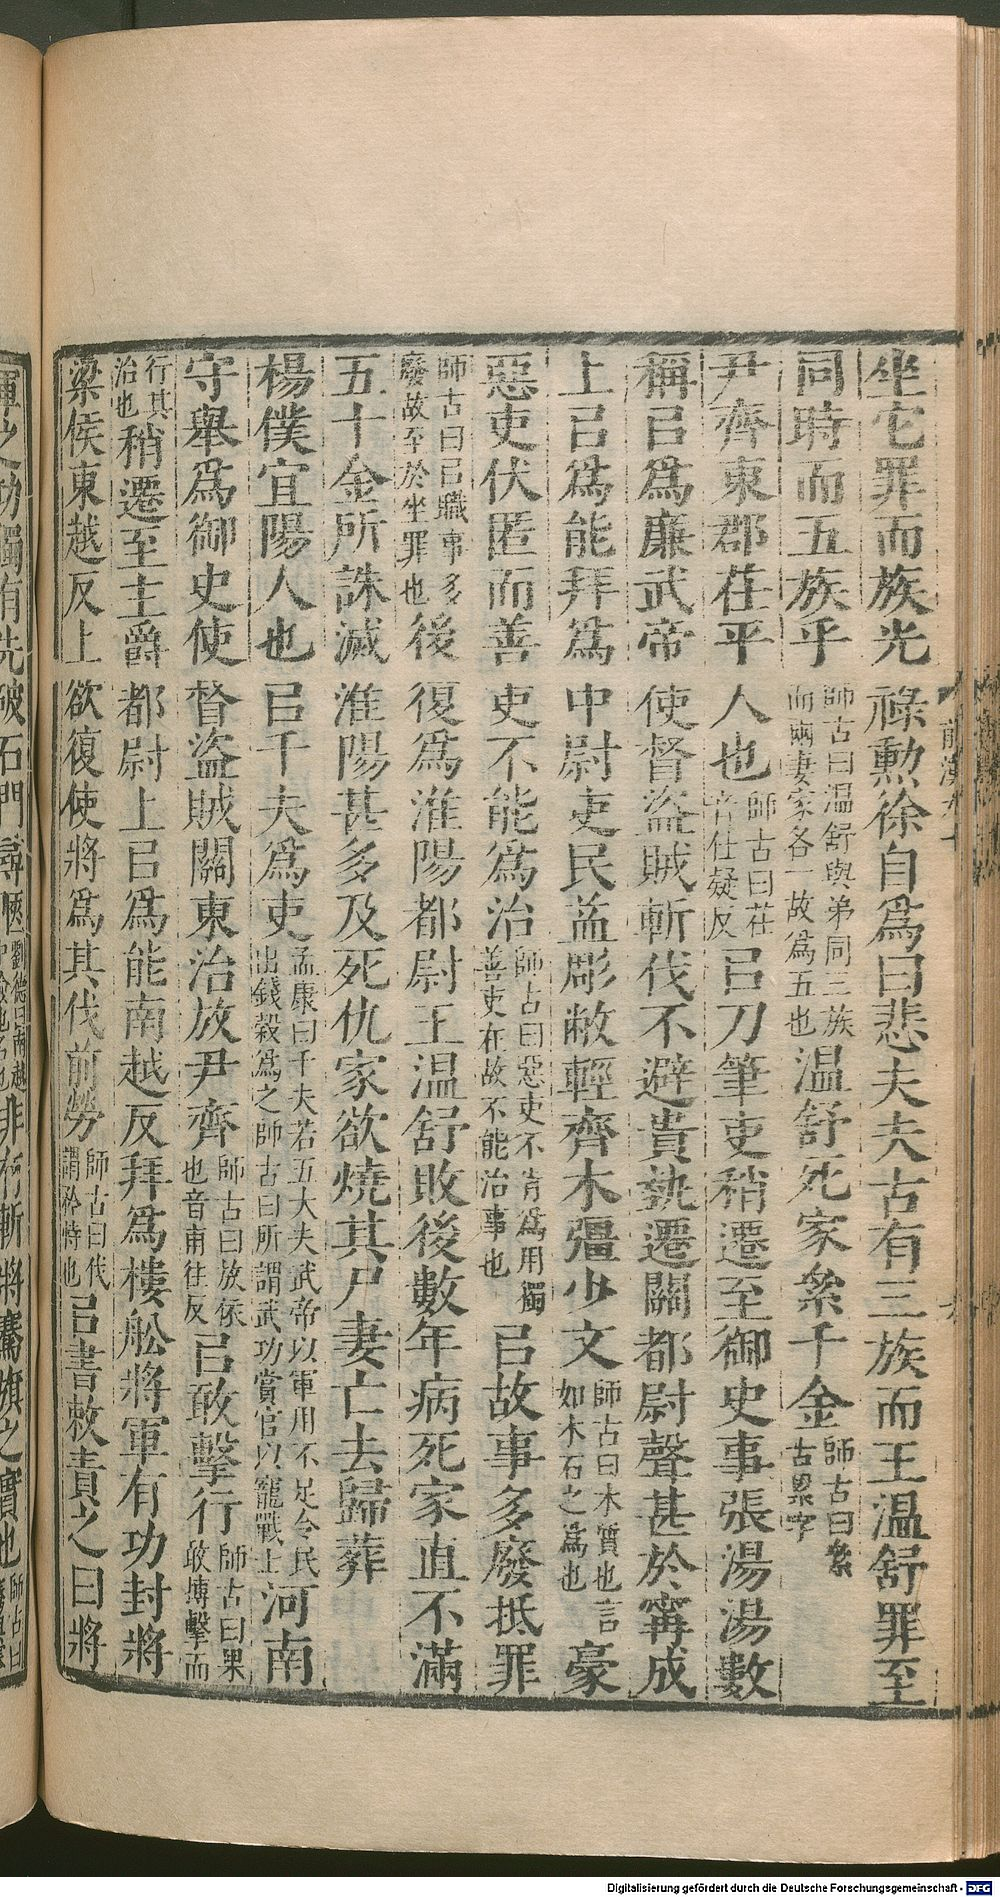 坐它罪而族光祿勲徐自爲曰悲夫夫古有三族而王温舒罪至
同時而五族乎師古曰温舒與弟同三族而兩妻家各一故爲五也温舒死家絫千金師古曰絫古累字
尹齊東郡茌平人也師古曰茌音仕疑反㠯刀筆吏稍遷至御史事張湯湯數
稱㠯爲廉武帝使督盜賊斬伐不避貴埶遷關都尉聲甚於甯成
上㠯爲能拜爲中尉吏民益彫敝輕齊木彊少文師古曰木質也言如木石之爲也豪
惡吏伏匿而善吏不能爲治師古曰惡吏不肯爲用獨善吏在故不能治事也㠯故事多廢抵罪
師古曰㠯職事多廢故至於坐罪也後復爲淮陽都尉王温舒敗後數年病死家直不滿
五十金所誅滅淮陽甚多及死仇家欲燒其尸妻亡去歸葬
楊僕宜陽人也㠯千夫爲吏孟康曰千夫若五大夫武帝以軍用不足令民出錢穀爲之師古曰所謂武功賞官以寵戰士河南
守舉爲御史使督盜賊關東治放尹齊師古曰放依也音甫往反㠯敢擊行師古曰果敢搏擊而
行其治也稍遷至主爵都尉上㠯爲能南越反拜爲樓舩將軍有功封將
梁侯東越反上欲復使將爲其伐前勞師古曰伐謂矜恃也㠯書敕責之曰將
軍之功獨有先破石門尋陿
前漢九十
六
Digitalisierung gefördert durch die Deutsche Forschungsgemeinschaft - DFG